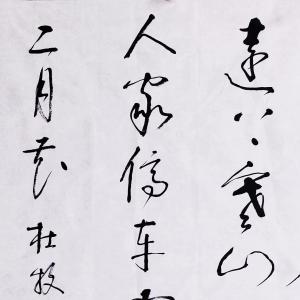 遠上寒山
人家停车
二月花 杜牧